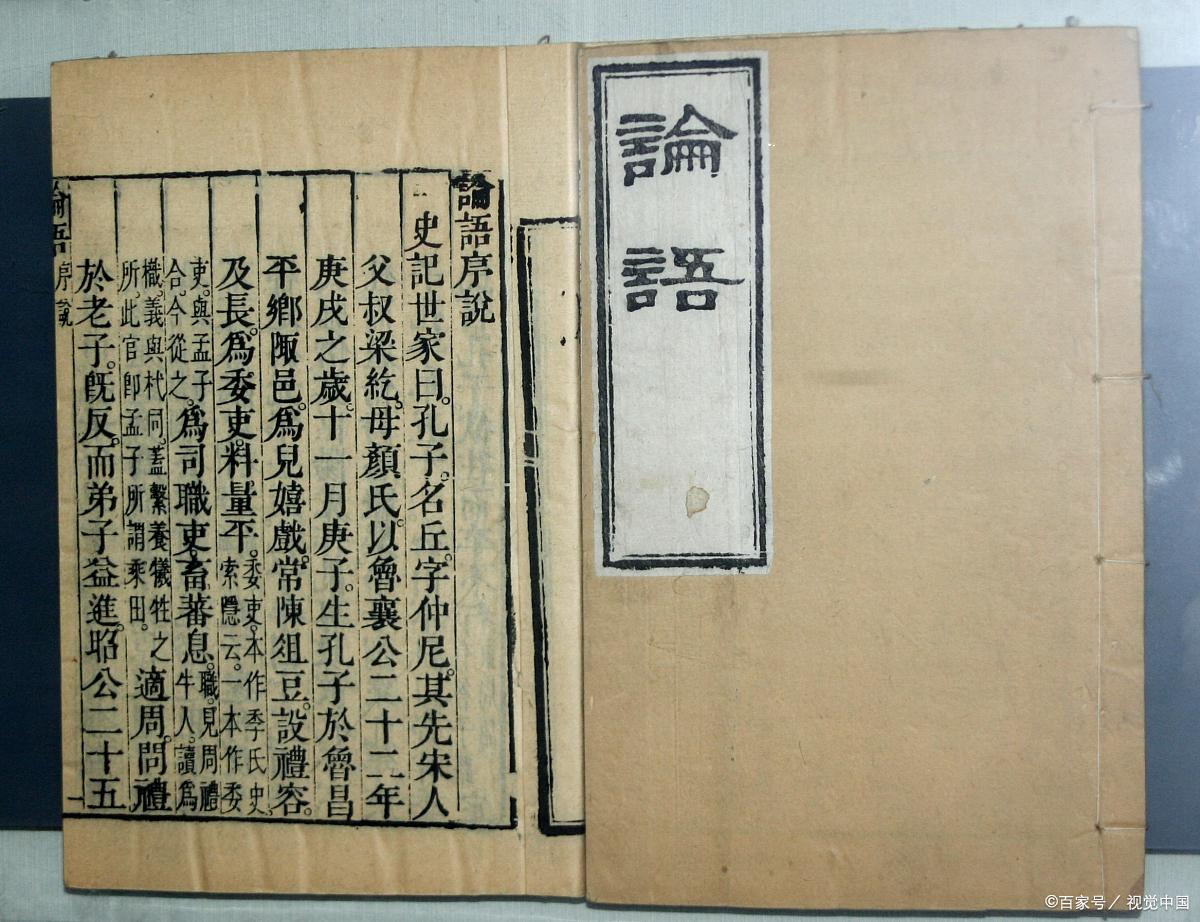 論語
論語序說
史記世家曰。孔子。名丘。字仲尼。其先宋人
父叔梁紇。母顏氏。以魯襄公二十二年
庚戌之歲。十一月庚子。生孔子於魯昌
平鄉陬邑。爲兒嬉戲。常陳俎豆。設禮容。
及長。爲委吏。料量平。委吏。本作季氏史。索隱云。一本作委
吏。與孟子合。今從之。爲司職吏。畜蕃息。職。見周禮牛人。讀爲
樴。義與杙同。蓋繫養犧牲之所。此官卽孟子所謂乘田。適周。問禮
於老子。旣反。而弟子益進。昭公二十五
論語序說
一
©百家号/视觉中国